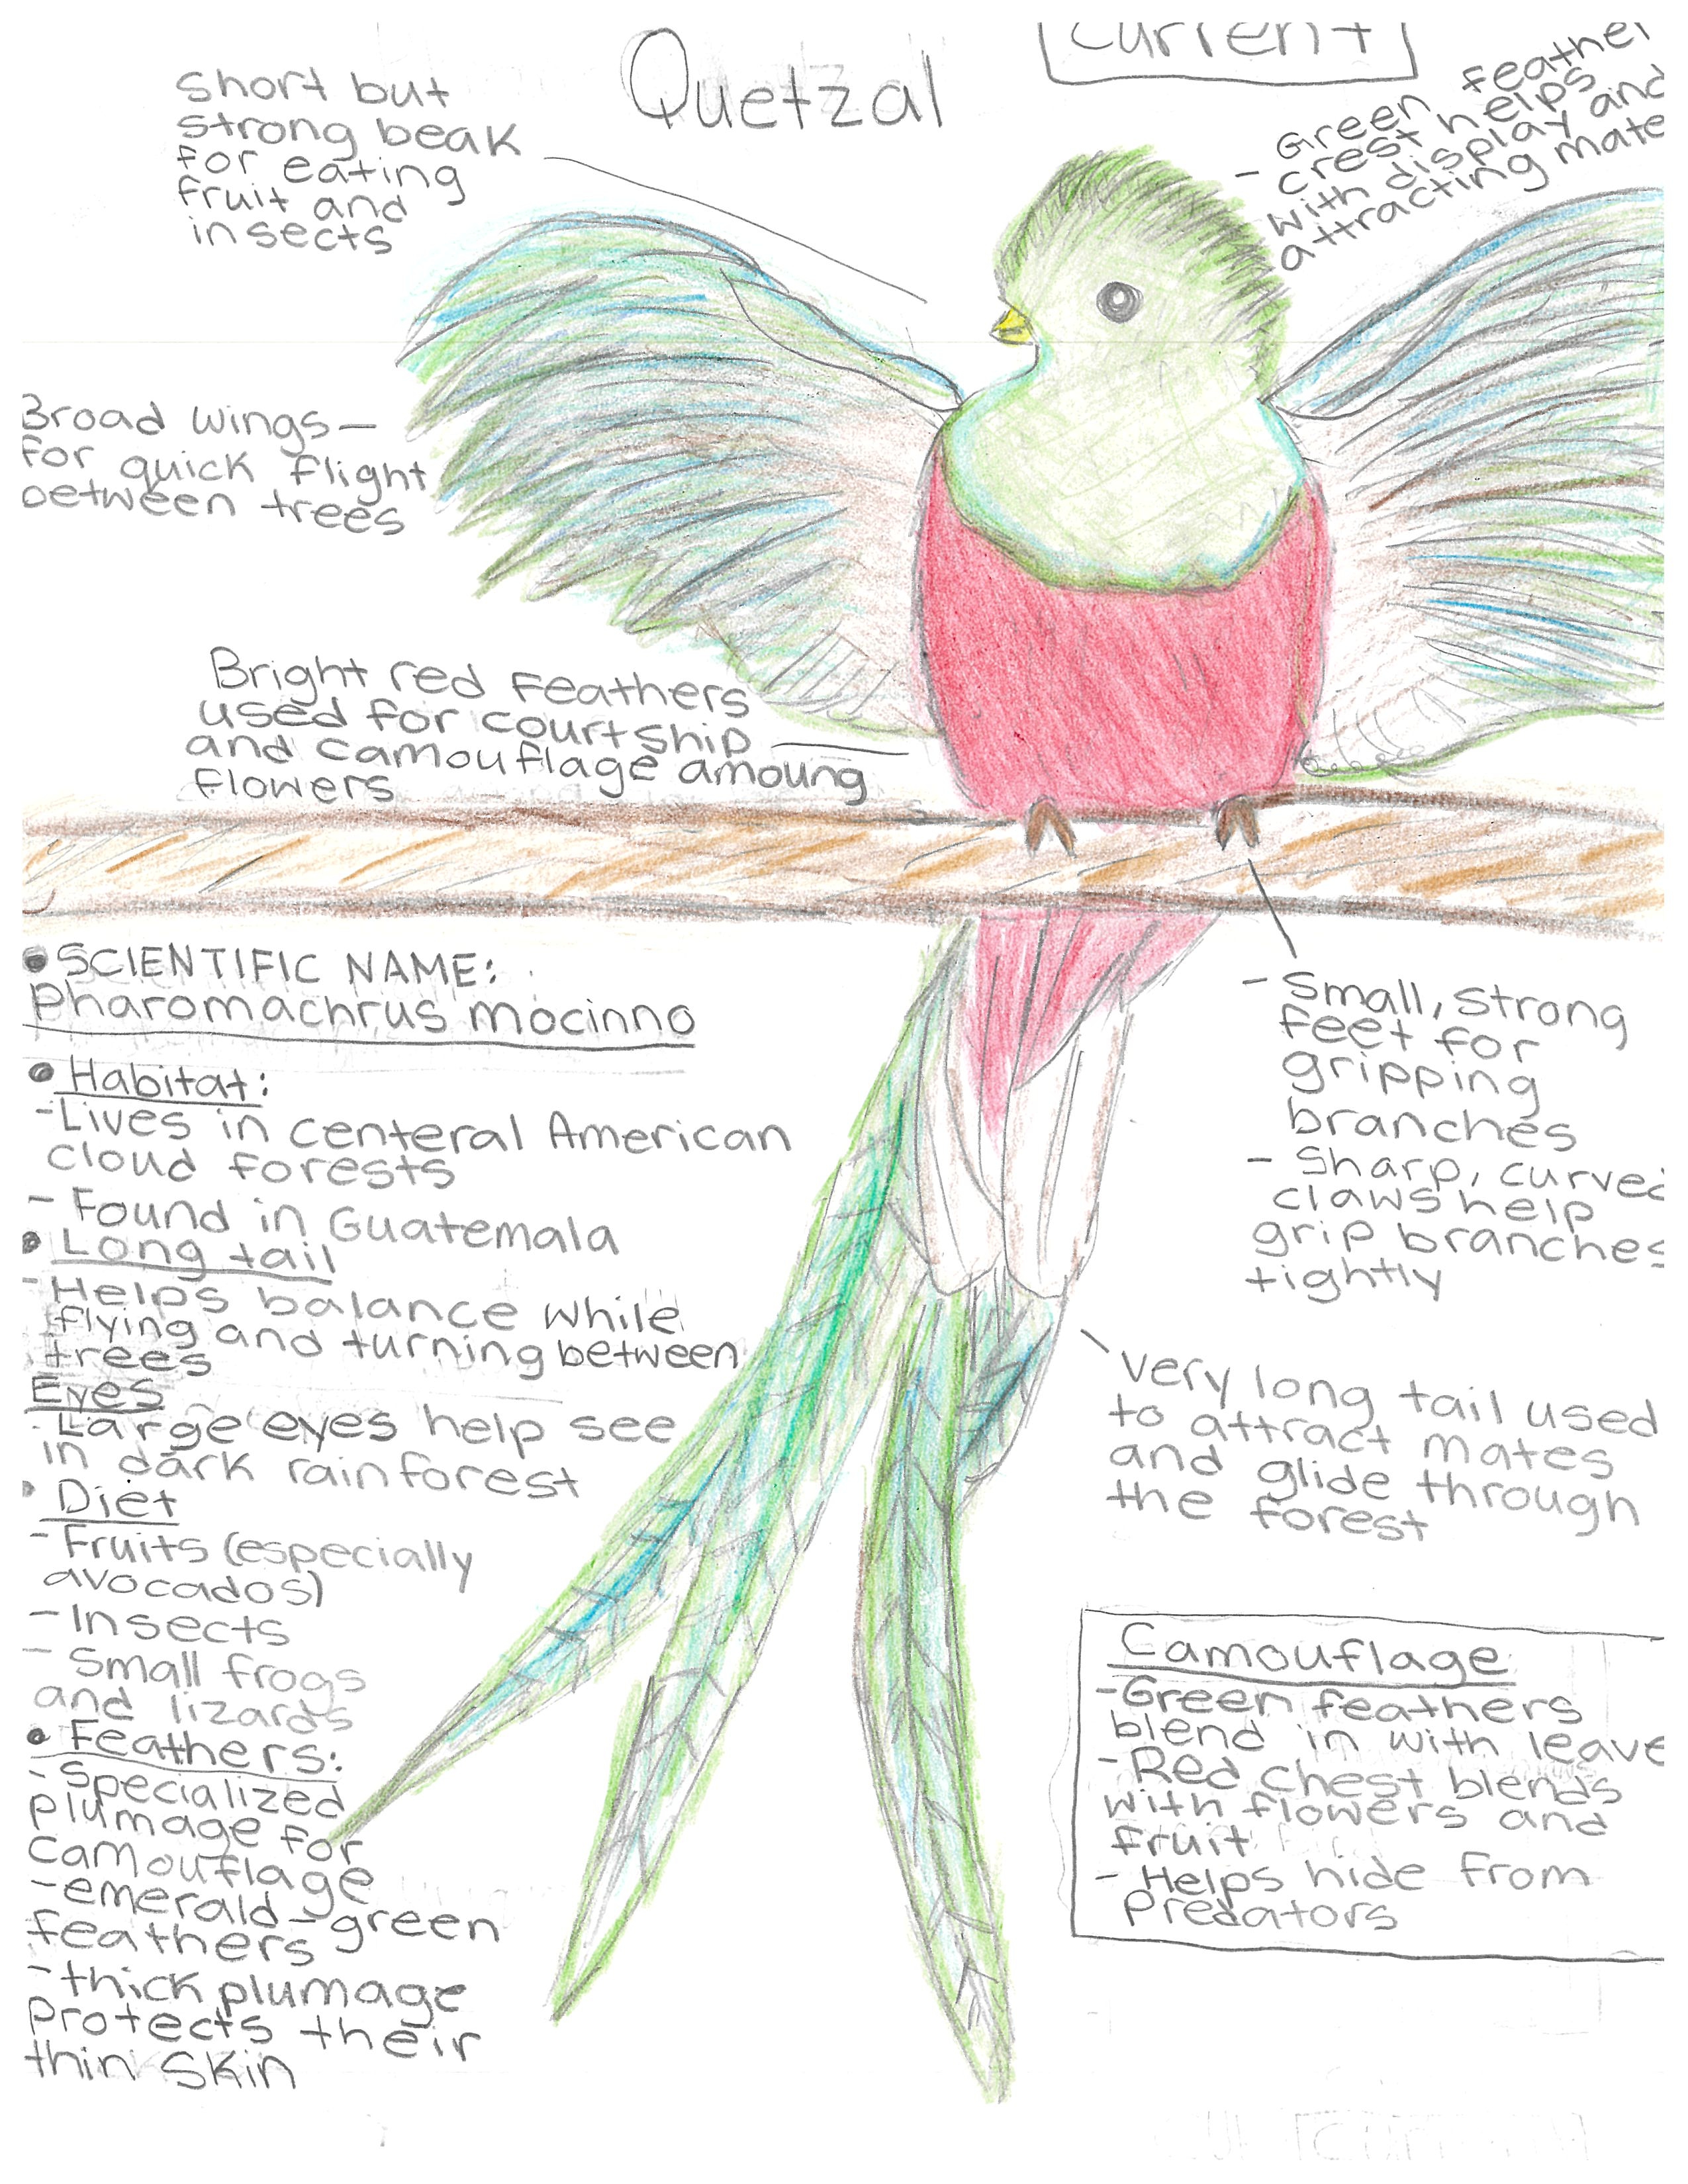 Quetzal
Current
short but
strong beak
for eating
fruit and
insects
- Green feather
crest helps
with display and
attracting mate
Broad wings—
for quick flight
between trees
Bright red feathers
used for courtship
and camouflage amoung
flowers
• SCIENTIFIC NAME:
Pharomachrus mocinno
• Habitat:
- Lives in centeral American
cloud forests
- Found in Guatemala
• Long tail
- Helps balance while
flying and turning between
trees
Eyes
- Large eyes help see
in dark rainforest
• Diet
- Fruits (especially
avocados)
- Insects
- Small frogs
and lizards
• Feathers:
- Specialized
plumage for
camouflage
- emerald-green
feathers
- thick plumage
protects their
thin skin
- Small, strong
feet for
gripping
branches
- Sharp, curved
claws help
grip branches
tightly
very long tail used
to attract mates
and glide through
the forest
Camouflage
- Green feathers
blend in with leave
- Red chest blends
with flowers and
fruit
- Helps hide from
Predators